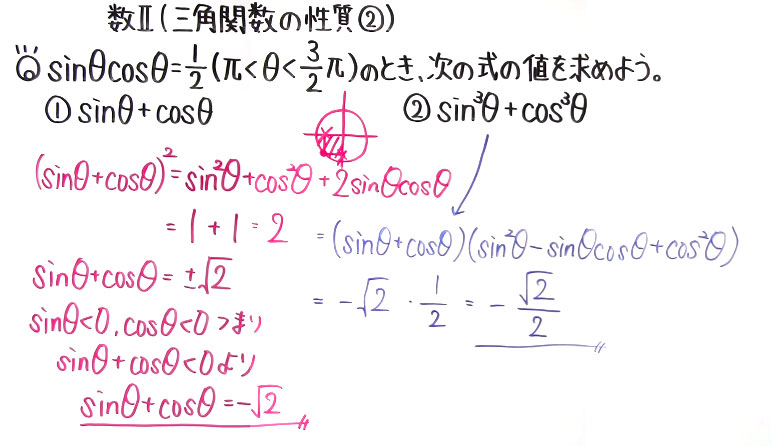 数Ⅱ(三角関数の性質②)
◎ sinθcosθ=1/2(π<θ<3/2π)のとき、次の式の値を求めよう。
① sinθ+cosθ
② sin³θ+cos³θ
(sinθ+cosθ)²=sin²θ+cos²θ+2sinθcosθ
=1+1=2
sinθ+cosθ=±√2
sinθ<0,cosθ<0つまり
sinθ+cosθ<0より
sinθ+cosθ=-√2
=(sinθ+cosθ)(sin²θ-sinθcosθ+cos²θ)
=-√2・1/2=-√2/2